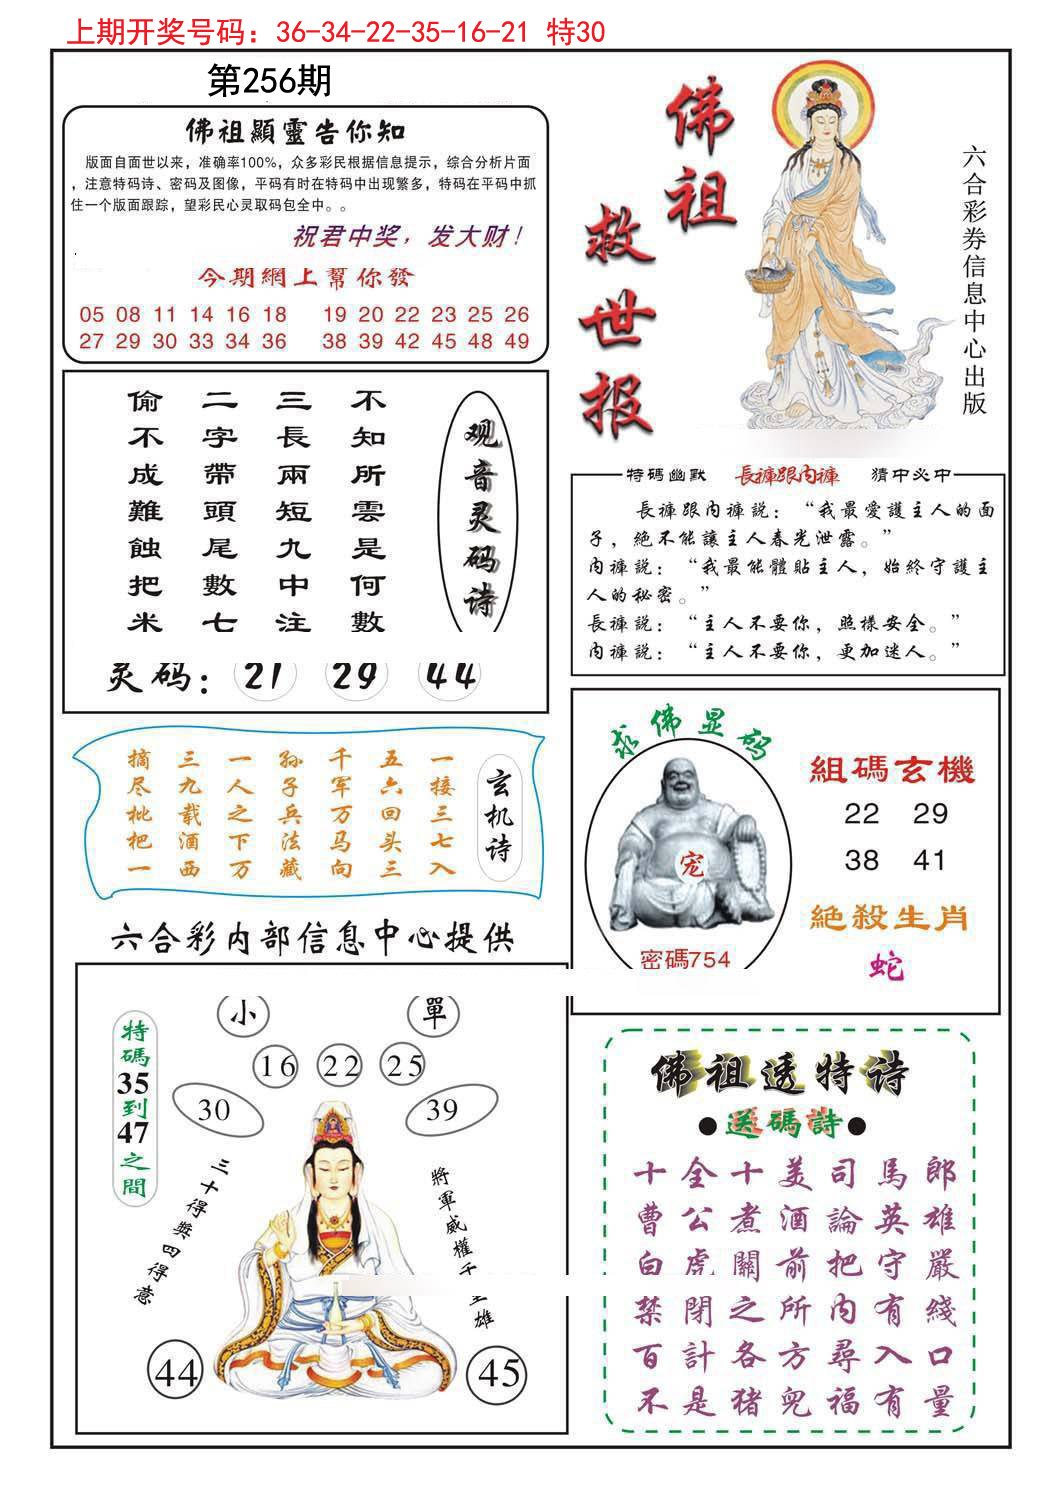 上期开奖号码：36-34-22-35-16-21 特30
第256期
佛祖顯靈告你知
版面自面世以来，准确率100%，众多彩民根据信息提示，综合分析片面
，注意特码诗、密码及图像，平码有时在特码中出现繁多，特码在平码中抓
住一个版面跟踪，望彩民心灵取码包全中。。
祝君中奖，发大财！
今期網上幫你發
05 08 11 14 16 18 19 20 22 23 25 26
27 29 30 33 34 36 38 39 42 45 48 49
佛祖
救世报
六合彩券信息中心出版
观音灵码诗
不知所雲是何數
三長兩短九中注
二字帶頭尾數七
偷不成難蝕把米
灵码：21 29 44
特碼幽默 長褲跟内褲 猜中必中
長褲跟内褲説：“我最愛護主人的面
子，絶不能讓主人春光泄露。”
内褲説：“我最能體貼主人，始終守護主
人的秘密。”
長褲説：“主人不要你，照樣安全。”
内褲説：“主人不要你，更加迷人。”
玄机诗
一接三七入
五六回头三
千军万马向
孙子兵法藏
一人之下万
三九载酒西
摘尽枇杷一
求佛显码
宠
密碼754
組碼玄機
22 29
38 41
絕殺生肖
蛇
六合彩内部信息中心提供
特碼35到47之間
小 單
16 22 25
30 39
三十得獎四得意
將軍威權
雄
44 45
佛祖透特诗
●送碼詩●
十全十美司馬郎
曹公煮酒論英雄
白虎關前把守嚴
禁閉之所内有綫
百計各方尋入口
不是猪兜福有量